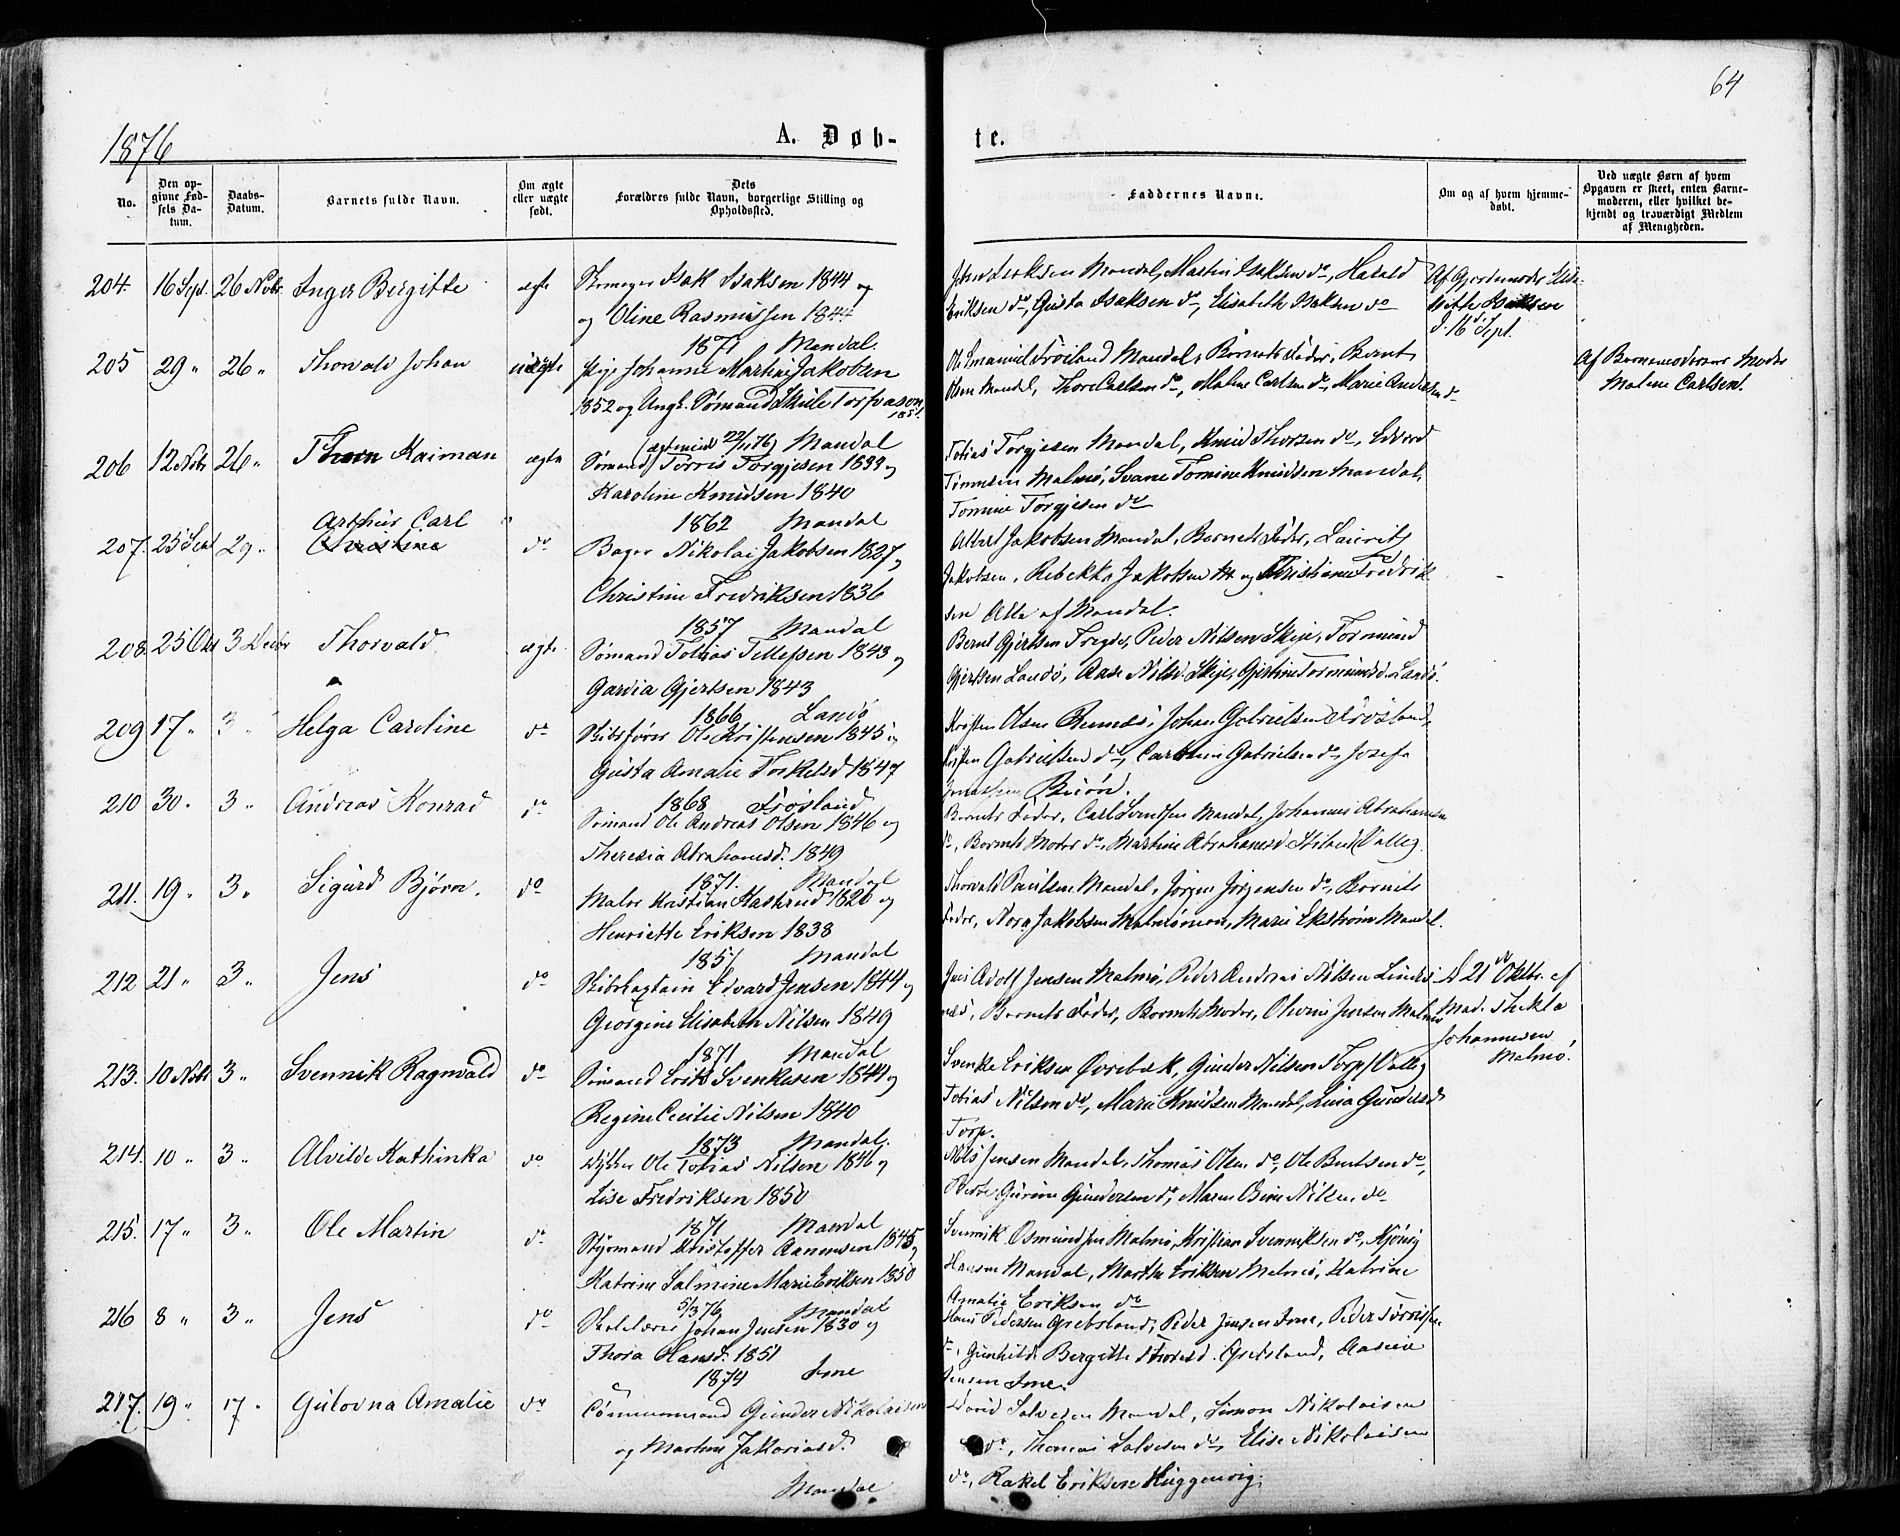 64
1876
A. Døb-
te.
No.
Den op-
givne Fød-
sels Da-
tum.
Daabs-
Datum.
Barnets fulde Navn.
Om ægte
eller uægte
født.
Dets
Forældres fulde Navn, borgerlige Stilling og
Opholdssted.
Faddernes Navne.
Om og af hvem hjemme-
døbt.
Ved uægte Børn af hvem
Opgaven er skeet, enten Barne-
moderen, eller hvilket be-
kjendt og troværdigt Medlem
af Menigheden.
204. 16 Sept. 26 Novbr. Inger Birgitte ægte Isak Isaksen 1844 og
og Oline Rasmussen 1844
1871 Mandal.
Mandal, Martin Isaksen do, Harald
Eriksen do, Gusta Isaksen do, Elisabeth Isaksen do
Af Gjordemoder
D. 16de Sept.
205 29 " 26 " Thorvald Johan uægte Pige Johanne Martine Jakobsen
1852 og Ung. Sømand Torfvason
1851.
Ole Emanuel Frøiland Mandal, Barnets Fader, Bernt
Olsen Mandal, Thore Carlsen do, Malene Carlsen do, Marie Andersen do
Af Barnemoderens Moder
Malene Carlsen.
206 12 Novbr 26 " Kaiman ægte
22/11 76) Mandal
Sømand Torris Torgjesen 1833 og
Karoline Knudsen 1840
1862 Mandal
Tobias Torgjesen Mandal, Knud Thorsen do, Edvard
Malmø, Svane Tomine Knudsen Mandal,
Tomine Torgjesen do
207. 25 Sept 29 " Arthur Carl
Christine
do Bager Nikolai Jakobsen 1827 og
Christine Fredriksen 1836
1857 Mandal
Albert Jakobsen Mandal, Barnets Fader, Laurits
Jakobsen, Rebekka Jakobsen og Christiane Fredrik-
sen Alle af Mandal.
208. 25 Okt 3 Decbr Thorvald ægte Sømand Tobias Tellefsen 1843 og
Gardia Gjertsen 1843
1866 Landø
Bernt Gjertsen Tregde, Peder Nilsen Skjie, Tormund
Gjertsen Landø, Aase Nilsd. Skjie, Gjertine Tormundsd. Landø.
209 17 " 3 " Helga Caroline do Skibsfører Ole Kristensen 1845 og
Gusta Amalie Torkelsd 1847
1868 Frøsland
Kristen Olsen, Johan Gabrielsen Frøsland,
Gabrielsen do, Gabrielsen do, Josefa
210 30 " 3 " Andreas Konrad do Sømand Ole Andreas Olsen 1846 og
Theresia Abrahamsd. 1849
1871. Mandal
Barnets Fader, Carl Svensen Mandal, Johannes Abrahamsen
do, Barnets Moder do, Martine Abrahamsd.
211. 19 " 3 " Sigurd Bjørn. do Maler Kristian Kastrud 1826 og
Henriette Eriksen 1838
1857 Mandal
Thorvald Paulsen Mandal, Jørgen Jørgensen do, Barnets
Fader, Nora Jakobsen, Marie Ekstrøm Mandal.
212 21 " 3 " Jens do Skibskaptain Edvard Jensen 1844 og
Georgine Elisabeth Nilsen 1849
1871 Mandal
Adolf Jensen Malmø, Peder Andreas Nilsen
Barnets Fader, Barnets Moder, Olivine Jensen Malmø
D. 21de Oktbr. af
Mad. Thekla
Johannesen
Malmø.
213. 10 Novbr 3 " Svennik Ragnvald do Sømand Erik Svenkesen 1844 og
Regine Cecilie Nilsen 1840
1873 Mandal.
Svenke Eriksen Øvrebæk, Gunder Nilsen Torp
Tobias Nilsen do, Marie Knudsen Mandal, Gundersd
Torp.
214. 10 " 3 " Alvilde Kathinka do Ole Tobias Nilsen 1846 og
Lise Fredriksen 1850
1871 Mandal
Nils Jensen Mandal, Thomas Olsen do, Ole Berntsen do,
Gurine Gundersen do, Maren Nilsen do
215. 17 " 3 " Ole Martin do Styrmand Kristoffer Aanensen 1845 og
Katrine Salmine Marie Eriksen 1850
5/3 76 Mandal
Svennik Osmundsen Malmø, Kristian Svenniksen do,
Hansen Mandal, Marthe Eriksen Malmø, Katrine
Amalie Eriksen do
216 8 " 3 " Jens do Skolelærer Johan Jensen 1830 og
Thora Hansd. 1851
1874 Ime
Hans Pedersen Grebsland, Peder Jensen Ime, Peder
do, Gunhild Bergitte Grebsland, Aasine
Jensen Ime.
217. 19 " 17 " Gulovna Amalie do Tømmermand Gunder Nikolaisen
og Martine Jakoriasd.
Mandal
David Salvesen Mandal, Simon Nikolaisen
do, Thomas Salvesen do, Elise Nikolaisen
do, Rakel Eriksen Huggenvig.